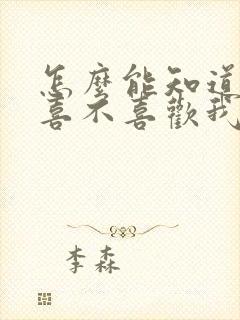 怎麼能知道
喜不喜歡我
李森